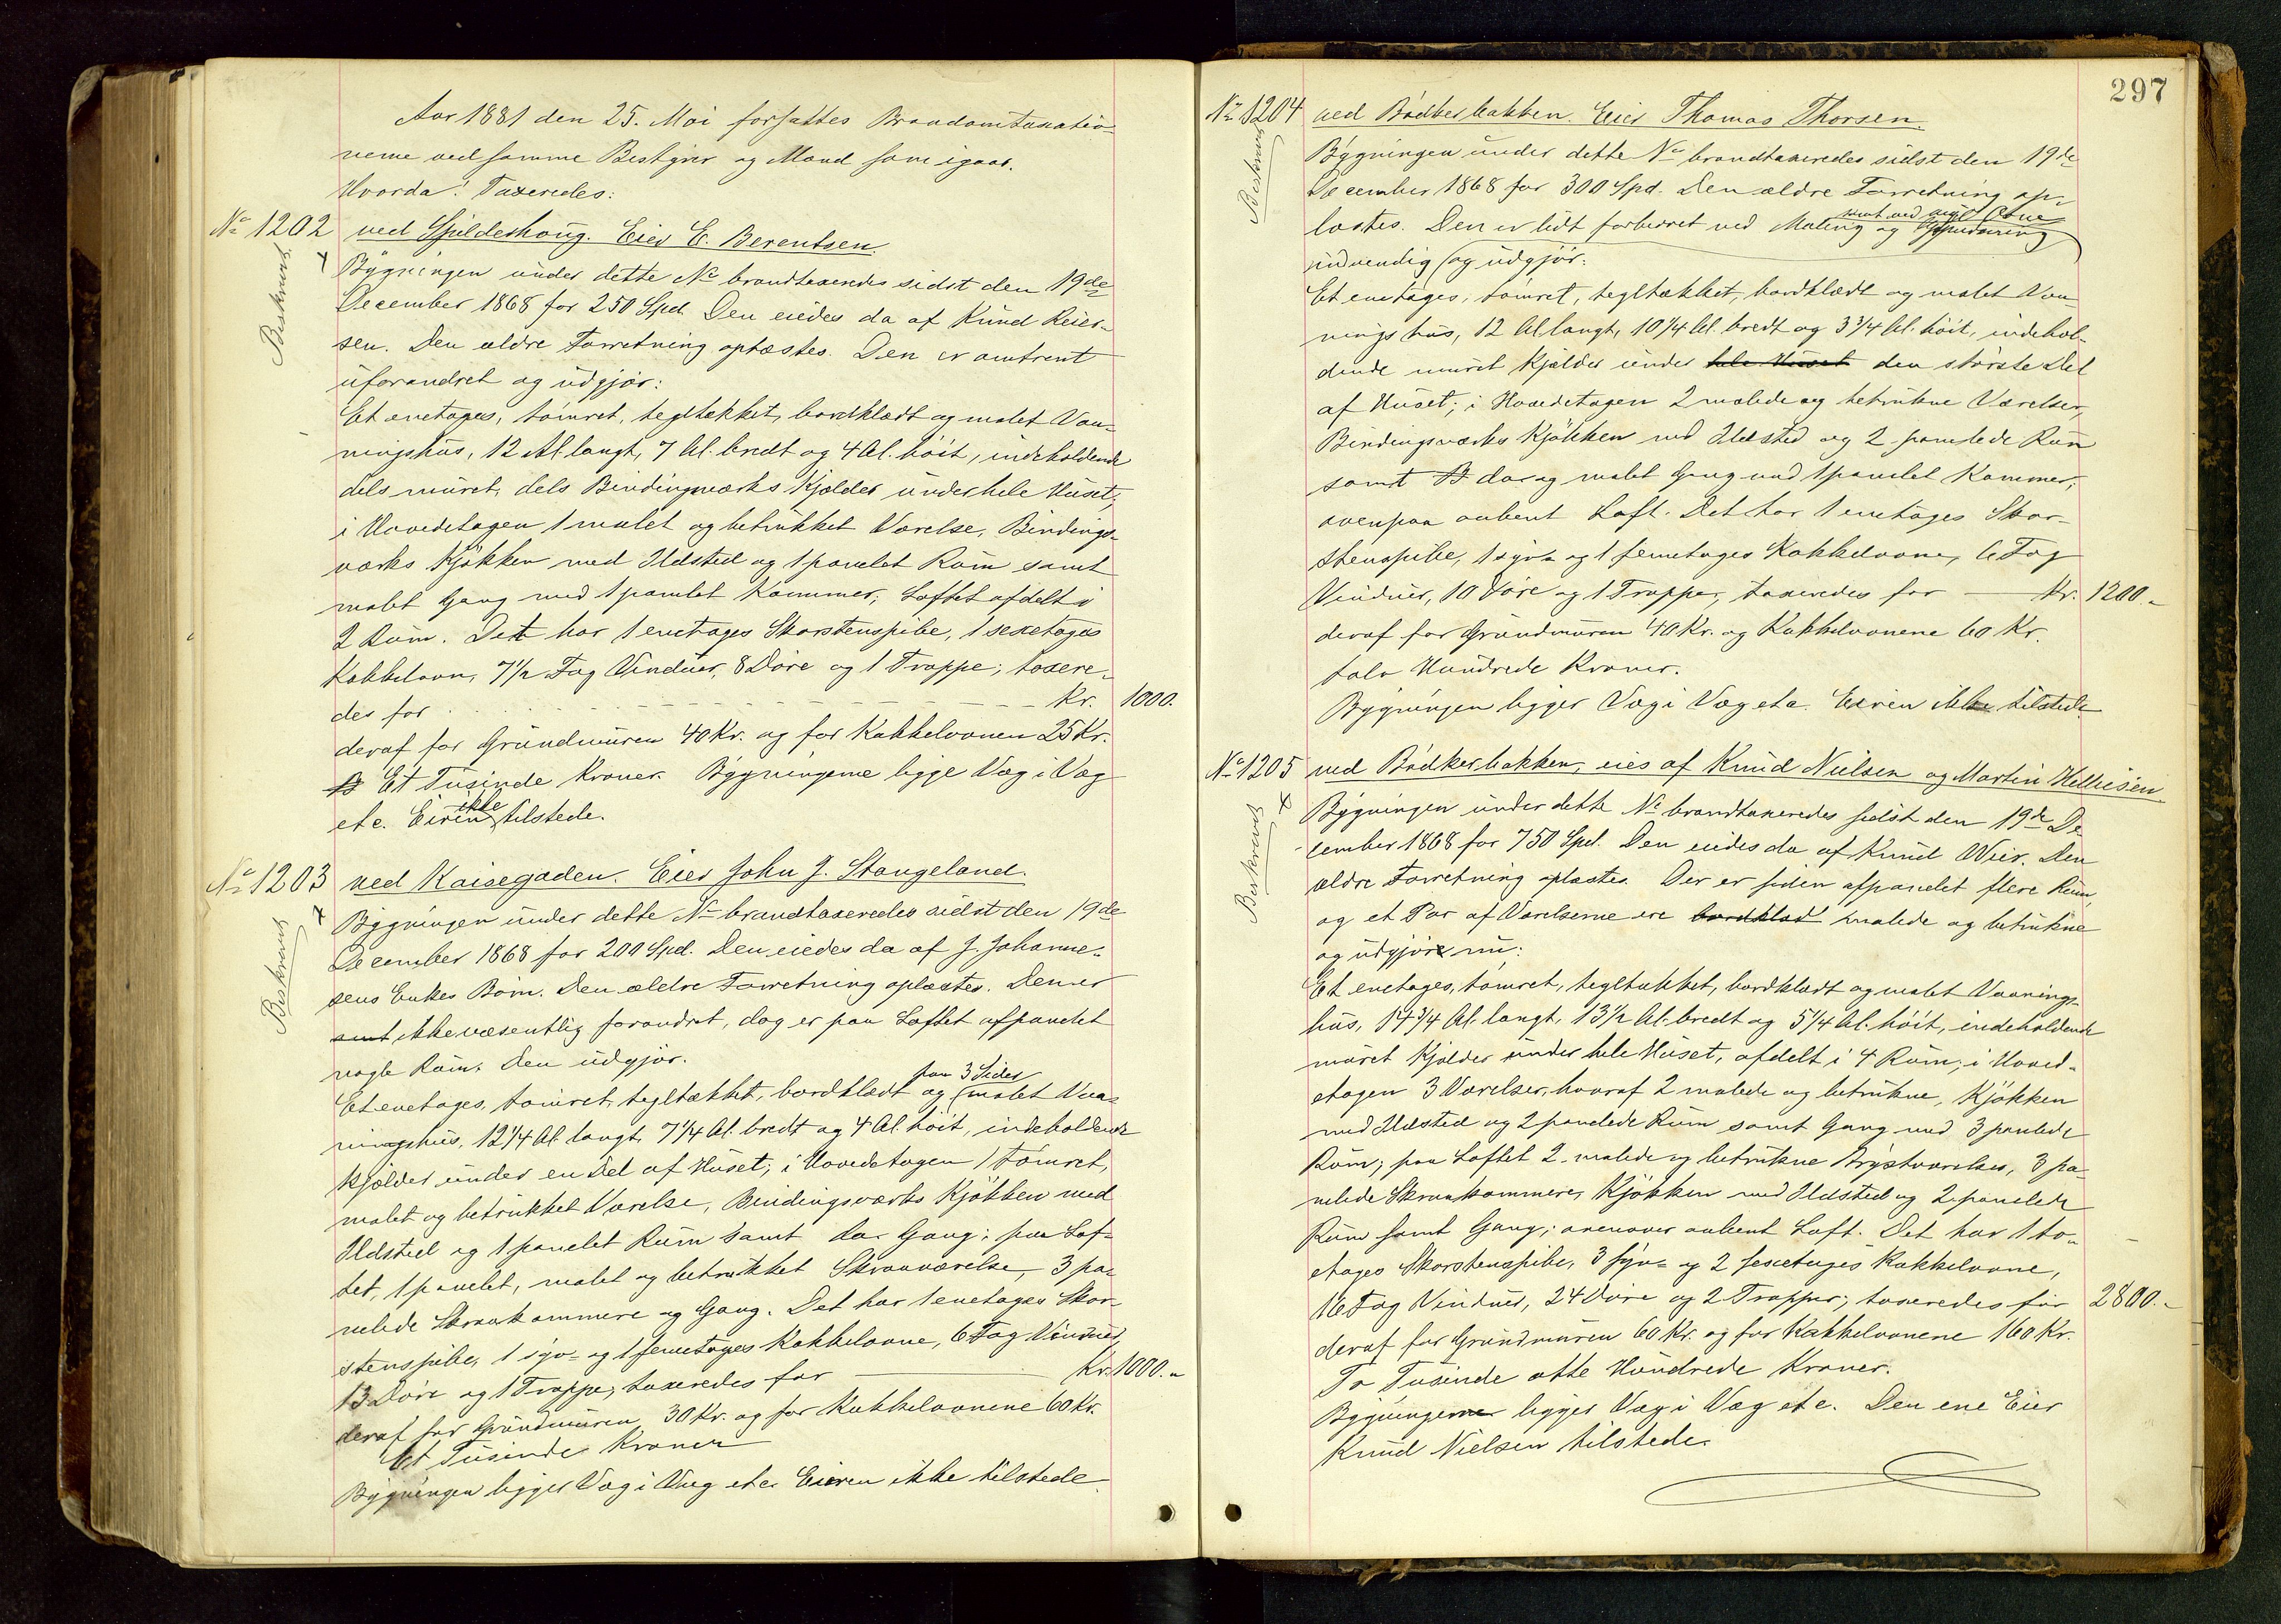 Aar 1881 den 25. Mai forsattes Brandomtaxatio-
nerne ved samme Bestyrer og Mænd som igaar.
Hvorda! Taxeredes:
No 1202 ved Spildeshoug. Eier E. Berentsen.
Beskrevet
Bygningen under dette No brandtaxeredes sidst den 19de
December 1868 for 250 Spd. Den eiedes da af Knud Reier-
sen. Den ældre Forretning oplæstes. Den er omtrent
uforandret og udgjør:
Et enetages, tømret, tegltækket, bordklædt og malet Vaa-
ningshus, 12 Al. langt, 7 Al. bredt og 4 Al. høit, indeholdende
dels muret, dels Bindingsværks Kjælder under hele Huset;
i Hovedetagen 1 malet og betrukket Værelse, Bindings-
værks Kjøkken med Ildsted og 1 panelet Rum samt
malet Gang med 1 panelet Kammer; Loftet afdelt i
2 Rum. Det har 1 enetages Skorstenspibe, 1 sexetages
Kakkelovn, 7½ Fag Vinduer, 8 Døre og 1 Trappe; taxere-
des for - - - Kr. 1000.
deraf for Grundmuren 40 Kr. og for Kakkelovnen 25 Kr.
Et Tusinde Kroner. Bygningerne ligge Væg i Væg
etc. Eieren ikke tilstede.
No 1203 ved Kaisegaden. Eier John J. Stangeland.
Beskrevet
Bygningen under dette No brandtaxeredes sidst den 19de
December 1868 for 200 Spd. Den eiedes da af J. Johanne-
sens Enkes Børn. Den ældre Forretning oplæstes. Den er
ikke væsentlig forandret, dog er paa Loftet afpanelet
nogle Rum. Den udgjør.
Et enetages, tømret, tegltækket, bordklædt og paa 3 Sider malet Vaa-
ningshus, 12¼ Al. langt, 7¼ Al. bredt og 4 Al. høit, indeholdende
Kjælder under en Del af Huset; i Hovedetagen 1 tømret,
malet og betrukket Værelse, Bindingsværks Kjøkken med
Ildsted og 1 panelet Rum samt da Gang; paa Lof-
tet, 1 panelet, malet og betrukket Skraaværelse, 3 pa-
nelede Skraakammere og Gang. Det har 1 enetages Skor-
stenspibe, 1 syv- og 1 femetages Kakkelovne, 6 Fag Vinduer,
13 Døre og 1 Trappe, taxeredes for Kr. 1000.-
deraf for Grundmuren 30 Kr. og for Kakkelovnene 60 Kr.
Et Tusinde Kroner
Bygningen ligger Væg i Væg etc. Eieren ikke tilstede.
297
No 1204 ved Bødkerbakken. Eier Thomas Thorsen.
Beskrevet
Bygningen under dette No brandtaxeredes sidst den 19de
December 1868 for 300 Spd. Den ældre Forretning op-
læstes. Den er lidt forbedret ved Maling og Gibsning samt med nyt
indvendig og udgjør:
Et enetages, tømret, tegltækket, bordklædt og malet Vaa-
ningshus, 12 Al. langt, 10¼ Al. bredt og 3¾ Al. høit, indehol-
dende muret Kjælder under hele Huset den største Del
af Huset; i Hovedetagen 2 malede og betrukne Værelser,
Bindingsværks Kjøkken med Ildsted og 2 panelede Rum
samt da og malet Gang med 1 panelet Kammer;
ovenpaa aabent Loft. Det har 1 enetages Skor-
stenspibe, 1 syv- og 1 femetages Kakkelovne, 6 Fag
Vinduer, 10 Døre og 1 Trappe, taxeredes for Kr. 1200.-
deraf for Grundmuren 40 Kr. og Kakkelovnene 60 Kr.
tolv Hundrede Kroner.
Bygningen ligger Væg i Væg etc. Eieren ikke tilstede
No 1205 ved Bødkerbakken, eies af Knud Nielsen og Martin Helliesen.
Beskrevet
Bygningen under dette No brandtaxeredes sidst den 19de De-
cember 1868 for 750 Spd. Den eiedes da af Knud Weir. Den
ældre Forretning oplæstes. Der er siden afpanelet flere Rum,
og et Par af Værelserne ere bordklæd malede og betrukne
og udgjør nu:
Et enetages, tømret, tegltækket, bordklædt og malet Vaanings-
hus, 14¾ Al. langt, 13½ Al. bredt og 5¼ Al. høit, indeholdende
muret Kjælder under hele Huset, afdelt i 4 Rum; i Hoved-
etagen 3 Værelser, hvoraf 2 malede og betrukne, Kjøkken
med Ildsted og 2 panelede Rum samt Gang med 3 panelede
Rum; paa Loftet 2 malede og betrukne Brystværelser, 3 pa-
nelede Skraakammere, Kjøkken med Ildsted og 2 panelede
Rum samt Gang; ovenover aabent Loft. Det har 1 to-
etages Skorstenspibe, 3 syv- og 2 sexetages Kakkelovne,
16 Fag Vinduer, 24 Døre og 2 Trapper; taxeredes for 2800.-
deraf for Grundmuren 60 Kr. og for Kakkelovnene 160 Kr.
To Tusinde otte Hundrede Kroner.
Bygningerne ligger Væg i Væg etc. Den ene Eier
Knud Nielsen tilstede.